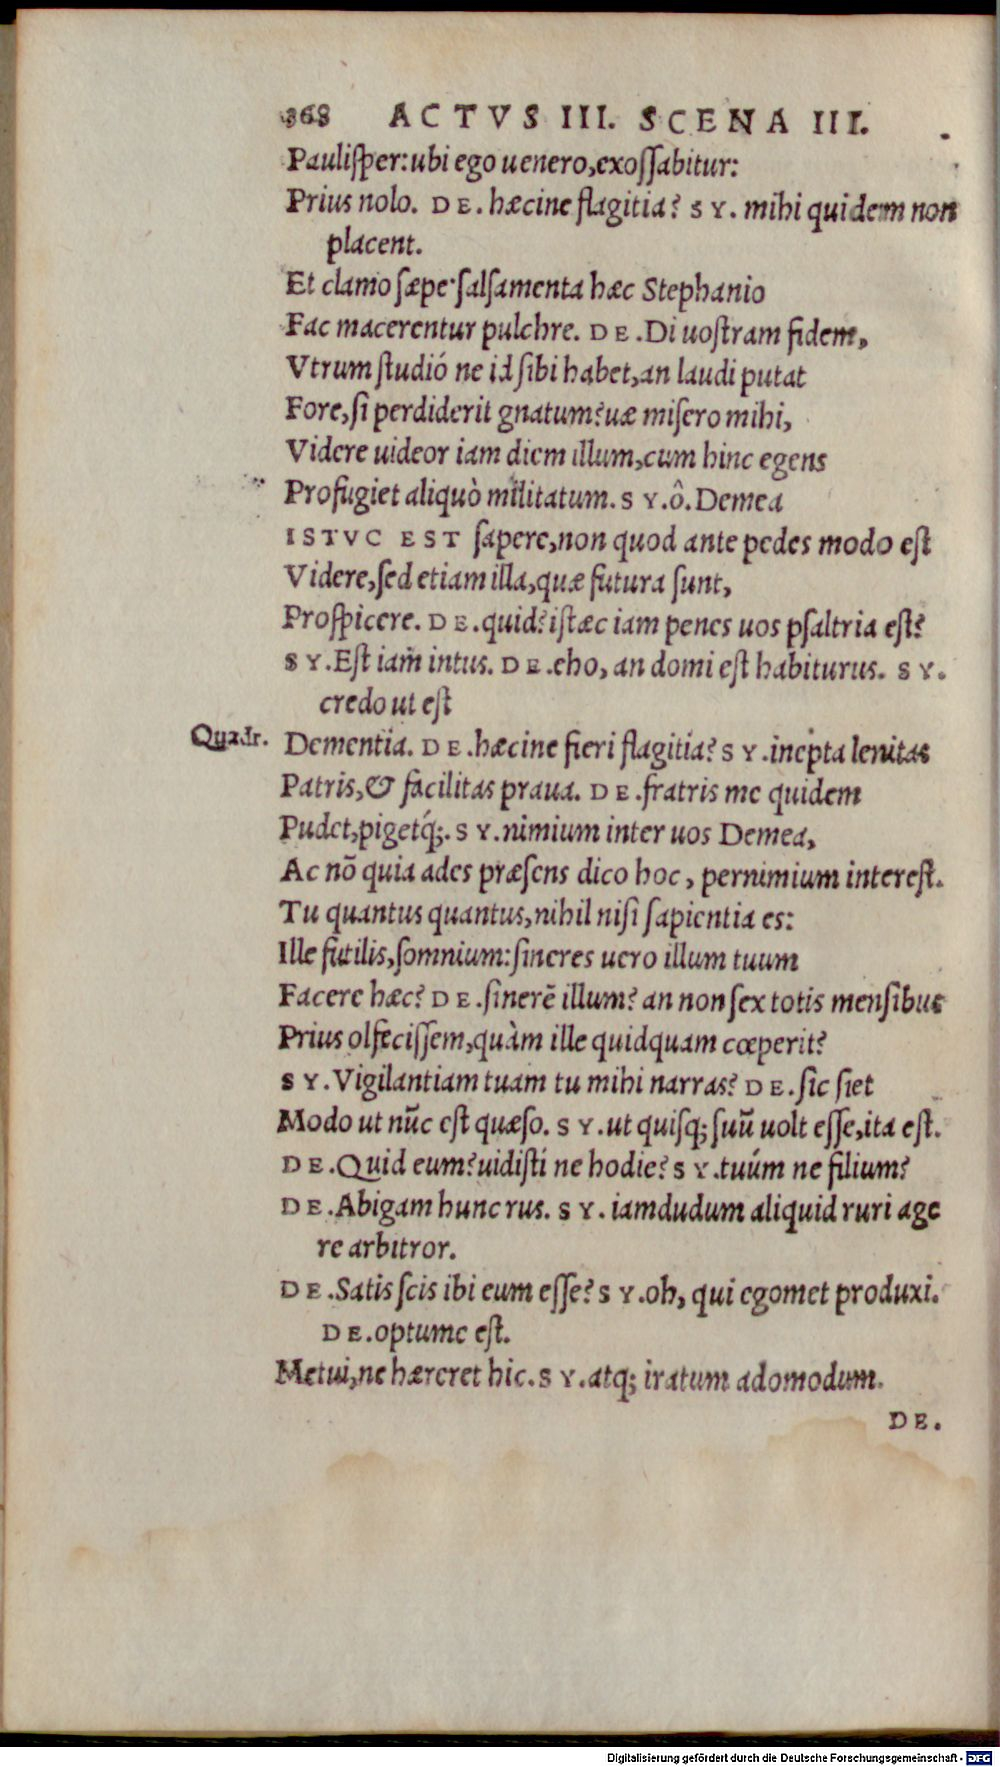 368 ACTVS III. SCENA III.
Pauliſper: ubi ego uenero, exoſſabitur:
Prius nolo. DE. hæcine flagitia? SY. mihi quidem non
placent.
Et clamo ſæpe· ſalſamenta hæc Stephanio
Fac macerentur pulchre. DE. Di uoſtram fidem,
Vtrum ſtudió ne id ſibi habet, an laudi putat
Fore, ſi perdiderit gnatum? uæ miſero mihi,
Videre uideor iam diem illum, cum hinc egens
Profugiet aliquò militatum. SY. ô. Demea
ISTVC EST ſapere, non quod ante pedes modo eſt
Videre, ſed etiam illa, quæ futura ſunt,
Proſpicere. DE. quid? iſtæc iam penes uos pſaltria eſt?
SY. Eſt iam intus. DE. eho, an domi eſt habiturus. SY.
credo ut eſt
Quadr. Dementia. DE. hæcine fieri flagitia? SY. inepta lenitas
Patris, & facilitas praua. DE. fratris me quidem
Pudet, pigetq́;. SY. nimium inter uos Demea,
Ac nõ quia ades præſens dico hoc, pernimium intereſt.
Tu quantus quantus, nihil niſi ſapientia es:
Ille futilis, ſomnium: ſineres uero illum tuum
Facere hæc? DE. ſinerẽ illum? an non ſex totis menſibus
Prius olfeciſſem, quàm ille quidquam cœperit?
SY. Vigilantiam tuam tu mihi narras? DE. ſic ſiet
Modo ut nũc eſt quæſo. SY. ut quiſq; ſuũ uolt eſſe, ita eſt.
DE. Quid eum? uidiſti ne hodie? SY. tuúm ne filium?
DE. Abigam hunc rus. SY. iamdudum aliquid ruri age
re arbitror.
DE. Satis ſcis ibi eum eſſe? SY. oh, qui egomet produxi.
DE. optume eſt.
Metui, ne hæreret hic. SY. atq; iratum adomodum.
DE.
Digitalisierung gefördert durch die Deutsche Forschungsgemeinschaft - DFG